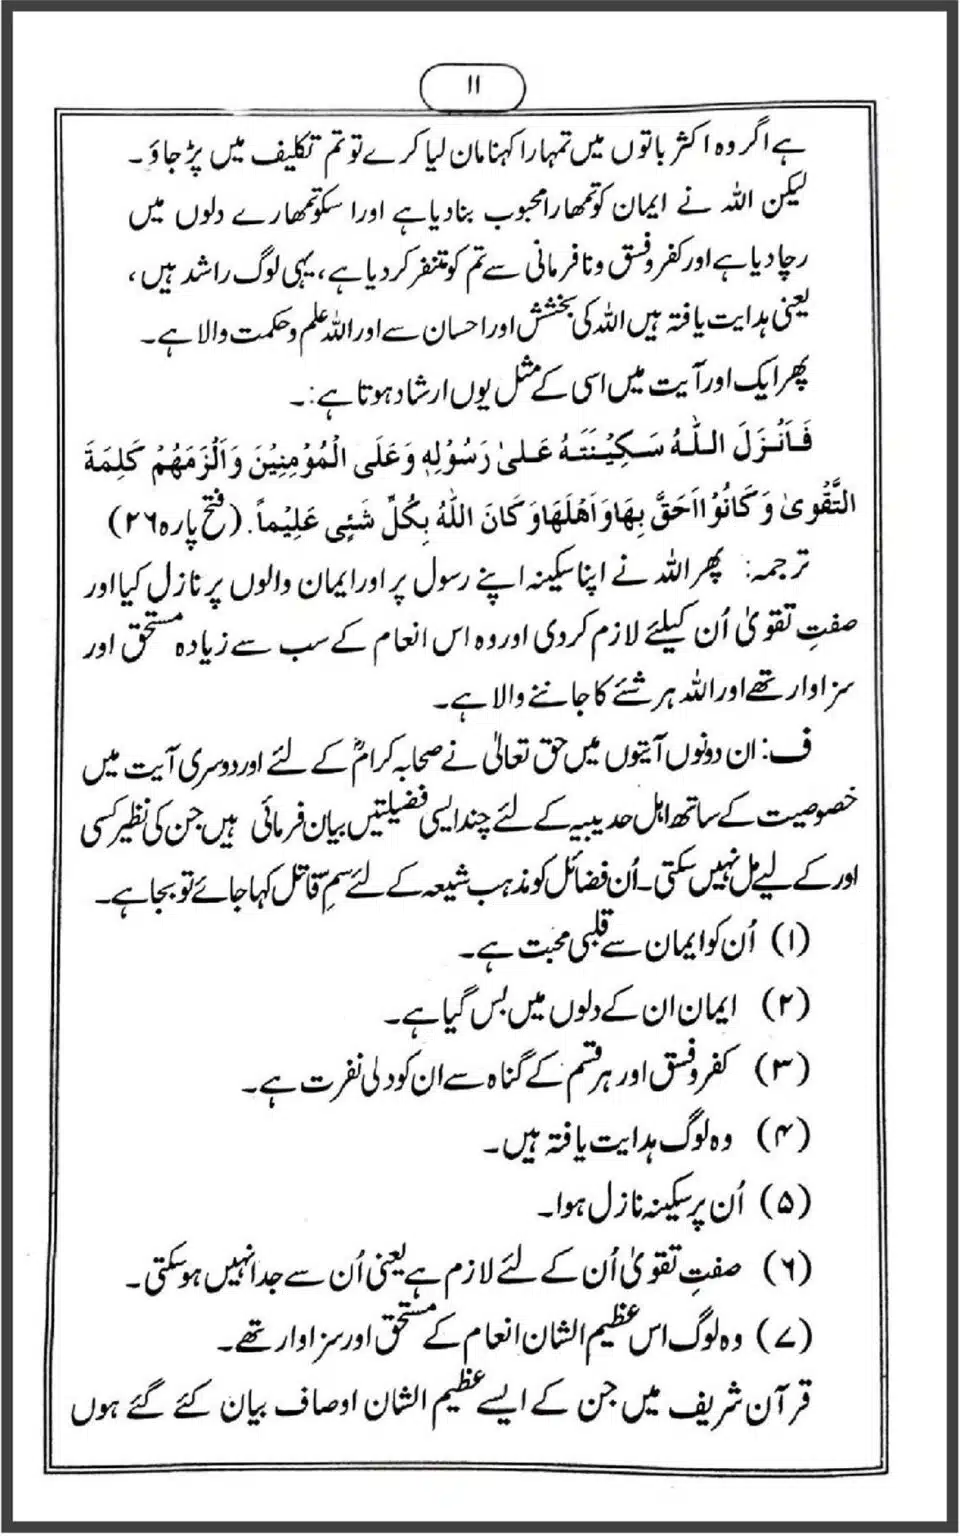 ۱۱
ہے اگر وہ اکثر باتوں میں تمہارا کہنا مان لیا کرے تو تم تکلیف میں پڑ جاؤ ۔
لیکن اللہ نے ایمان کو تمھارا محبوب بنا دیا ہے اور اسکو تمھارے دلوں میں
رچا دیا ہے اور کفر و فسق و نافرمانی سے تم کو متنفر کر دیا ہے، یہی لوگ راشد ہیں،
یعنی ہدایت یافتہ ہیں اللہ کی بخشش اور احسان سے اور اللہ علم و حکمت والا ہے۔
پھر ایک اور آیت میں اسی کے مثل یوں ارشاد ہوتا ہے:۔
فَاَنْزَلَ اللّٰہُ سَکِیْنَتَہٗ عَلیٰ رَسُوْلِہٖ وَعَلَی الْمُؤْمِنِیْنَ وَاَلْزَمَھُمْ کَلِمَۃَ
التَّقْویٰ وَکَانُوْا اَحَقَّ بِھَا وَاَھْلَھَا وَکَانَ اللّٰہُ بِکُلِّ شَئیٍ عَلِیْماً. (فتح پارہ ۲۶)
ترجمہ: پھر اللہ نے اپنا سکینہ اپنے رسول پر اور ایمان والوں پر نازل کیا اور
صفتِ تقویٰ اُن کیلئے لازم کر دی اور وہ اس انعام کے سب سے زیادہ مستحق اور
سزاوار تھے اور اللہ ہر شئے کا جاننے والا ہے۔
ف: ان دونوں آیتوں میں حق تعالیٰ نے صحابہ کرامؓ کے لئے اور دوسری آیت میں
خصوصیت کے ساتھ اہل حدیبیہ کے لئے چند ایسی فضیلتیں بیان فرمائی ہیں جن کی نظیر کسی
اور کے لیے مل نہیں سکتی۔ اُن فضائل کو مذہب شیعہ کے لئے سمِ قاتل کہا جائے تو بجا ہے۔
(۱) اُن کو ایمان سے قلبی محبت ہے۔
(۲) ایمان ان کے دلوں میں بس گیا ہے۔
(۳) کفر و فسق اور ہر قسم کے گناہ سے ان کو دلی نفرت ہے۔
(۴) وہ لوگ ہدایت یافتہ ہیں۔
(۵) اُن پر سکینہ نازل ہوا۔
(۶) صفتِ تقویٰ اُن کے لئے لازم ہے یعنی اُن سے جدا نہیں ہو سکتی۔
(۷) وہ لوگ اس عظیم الشان انعام کے مستحق اور سزاوار تھے۔
قرآن شریف میں جن کے ایسے عظیم الشان اوصاف بیان کئے گئے ہوں